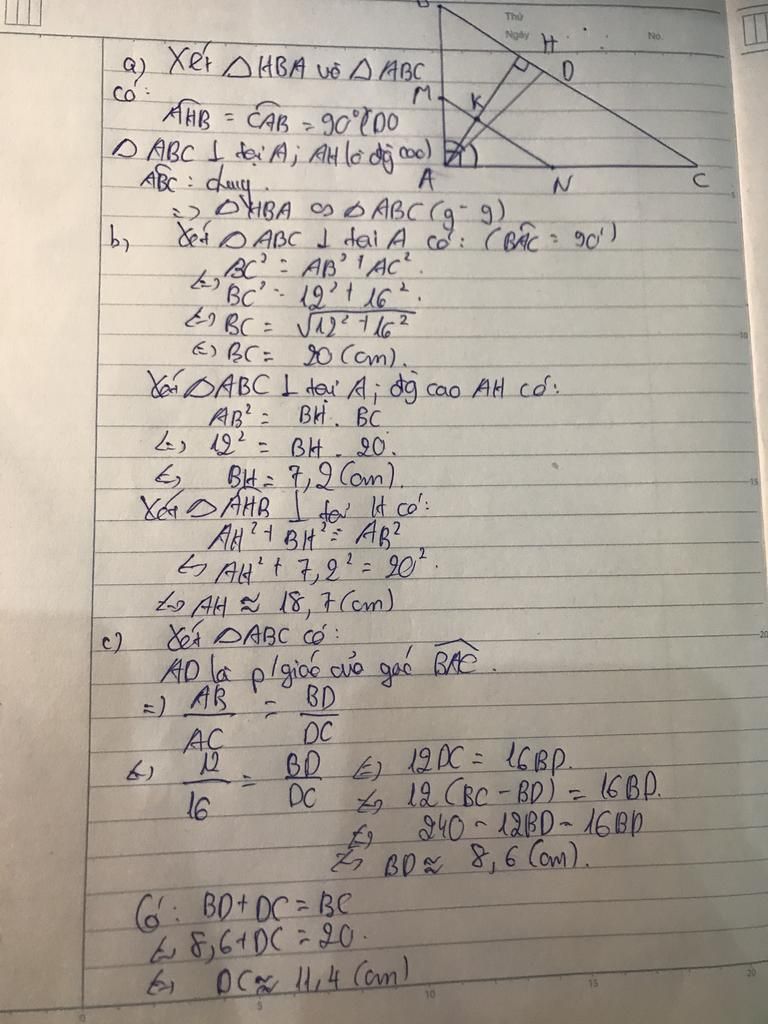 Thứ
Ngày
No.
B
H
D
M
K
A
N
C
a) Xét △HBA và △ABC
có:
AHB = CAB = 90° (DO
△ABC ⊥ tại A; AH là đg cao)
ABC: chung.
=> △HBA ∽ △ABC (g-g)
b, Xét △ABC ⊥ tại A có: (BAC = 90°)
BC² = AB² + AC².
<=> BC² = 12² + 16².
<=> BC = √12² + 16²
<=> BC = 20 (cm).
Xét △ABC ⊥ tại A; đg cao AH có:
AB² = BH. BC
<=> 12² = BH . 20.
<=> BH = 7,2 (cm).
Xét △AHB ⊥ tại H có:
AH² + BH² = AB²
<=> AH² + 7,2² = 20².
<=> AH ≈ 18,7 (cm)
c) Xét △ABC có:
AD là p/giác của góc BAC.
=> AB/AC = BD/DC
<=> 12/16 = BD/DC <=> 12DC = 16BD.
<=> 12 (BC - BD) = 16BD.
<=> 240 - 12BD = 16BD
<=> BD ≈ 8,6 (cm).
Có: BD + DC = BC
<=> 8,6 + DC = 20.
<=> DC ≈ 11,4 (cm)
5
10
15
20